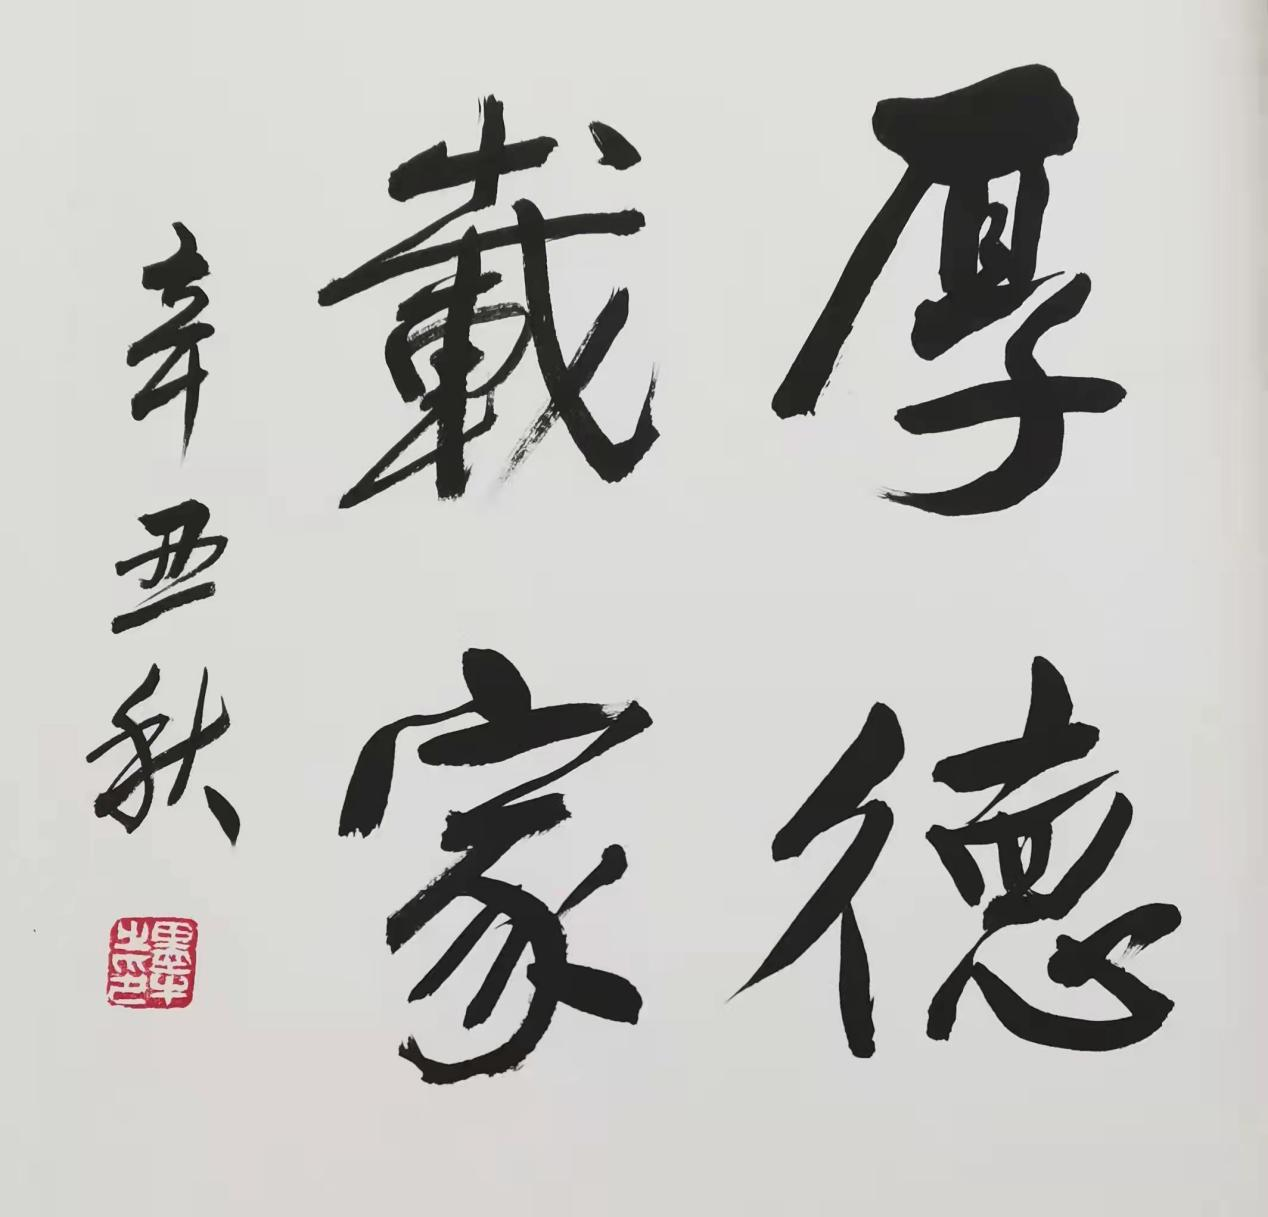 厚德
載家
辛丑秋